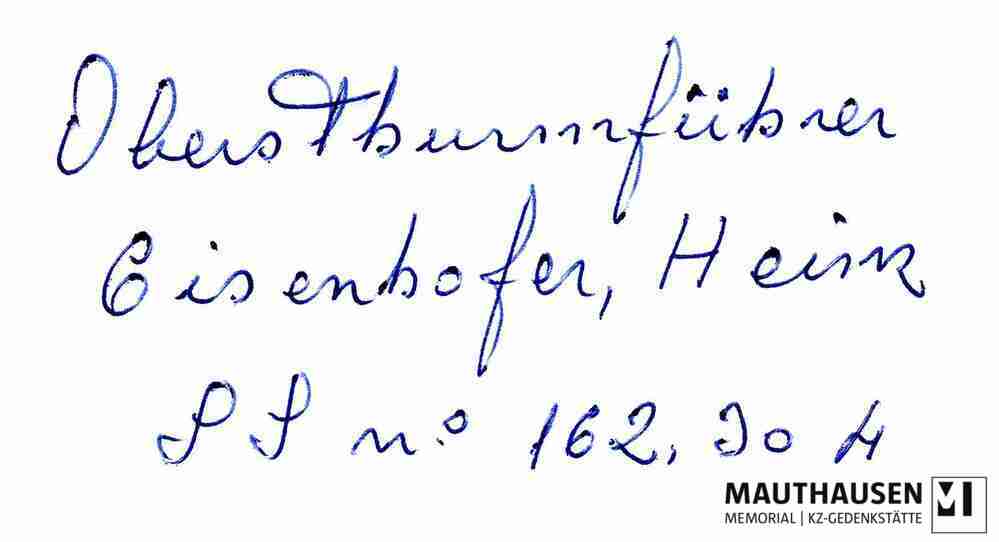 Obersthurmführer
Eisenhofer, Heinz
SS n.º 162.304
MAUTHAUSEN
MEMORIAL | KZ-GEDENKSTÄTTE